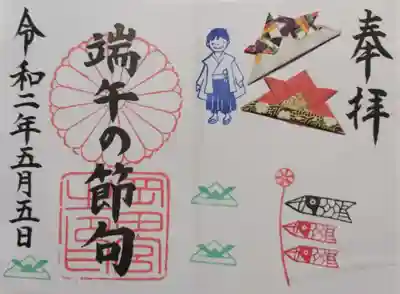 奉拝
端午の節句
令和二年五月五日